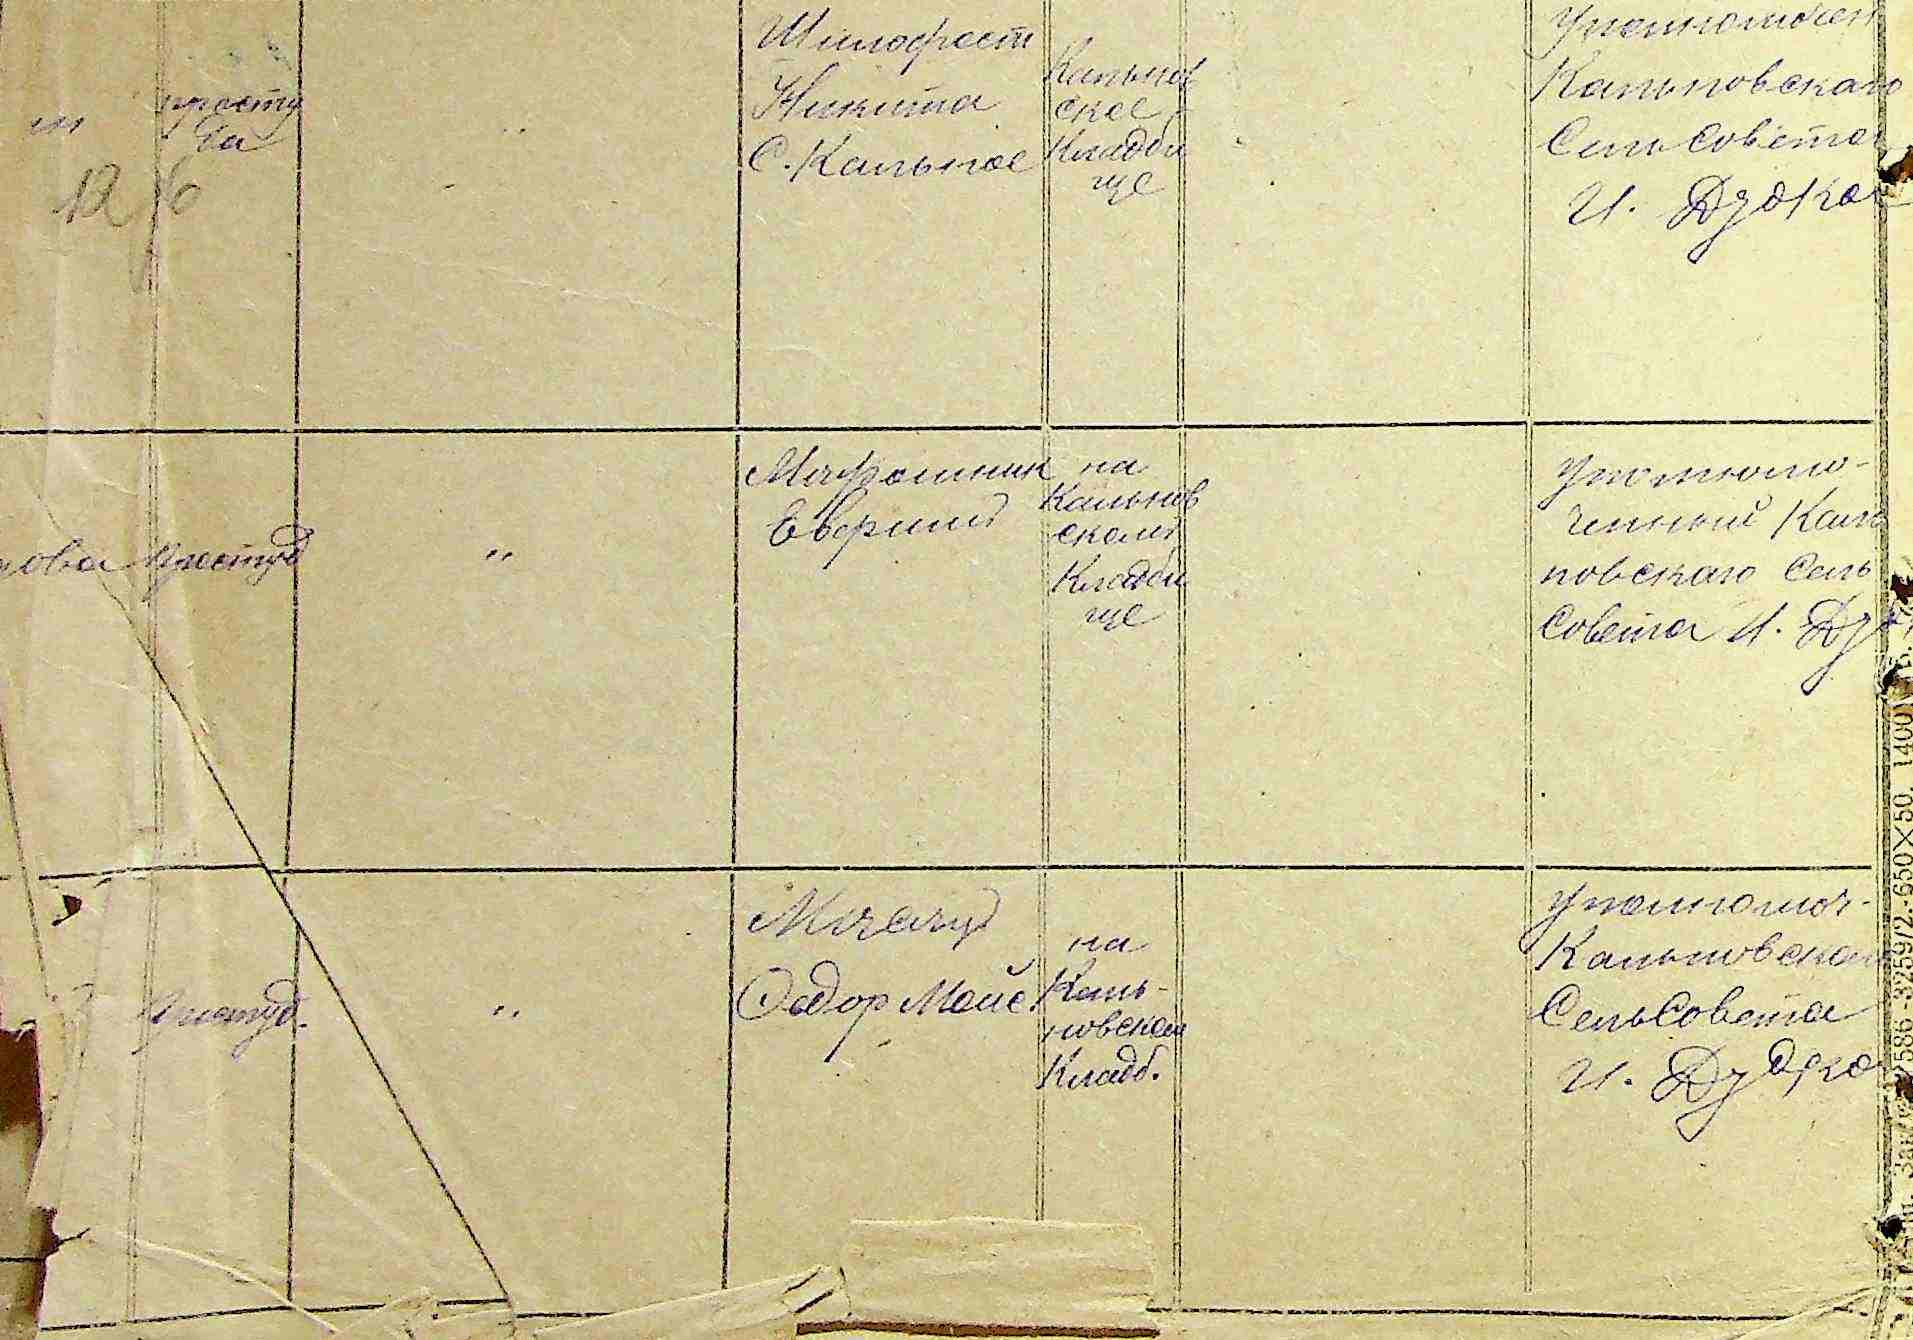 простуда
12
Шилофост
Никита
С. Кальное
Кальнов
ское
Кладби
ще
Уполномочен
Кальновскаго
Сельсовета
И. Дудко
простуд
"
Мирошник
на
Кальнов
ском
Кладби
ще
Уполномо-
ченный Каль
новскаго Сель
Совета И. Ду
простуд.
"
Федор Моис.
на
Каль-
новском
Кладб.
Уполномоч-
Кальновскаго
СельСовета
И. Дудко
2586 - 3259/2. - 650×50. 1400